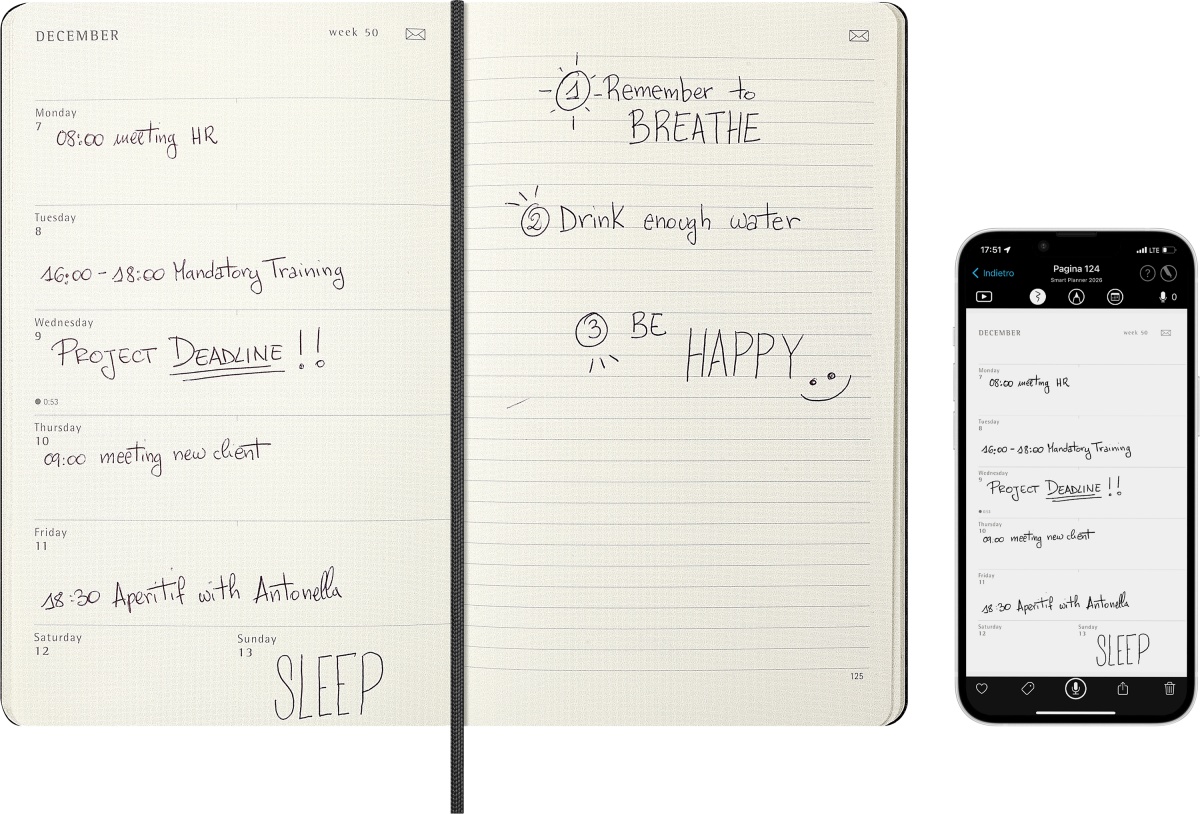 DECEMBER
week 50
Monday
7
08:00 meeting HR
Tuesday
8
16:00 - 18:00 Mandatory Training
Wednesday
9
PROJECT DEADLINE !!
0:53
Thursday
10
09:00 meeting new client
Friday
11
18:30 Aperitif with Antonella
Saturday
12
Sunday
13
SLEEP
1 Remember to
BREATHE
2 Drink enough water
3 BE
HAPPY
125
17:51
LTE
Indietro
Pagina 124
Smart Planner 2026
?
0
DECEMBER
week 50
Monday
7
08:00 meeting HR
Tuesday
8
16:00 - 18:00 Mandatory Training
Wednesday
9
PROJECT DEADLINE !!
Thursday
10
09:00 meeting new client
Friday
11
18:30 Aperitif with Antonella
Saturday
12
Sunday
13
SLEEP